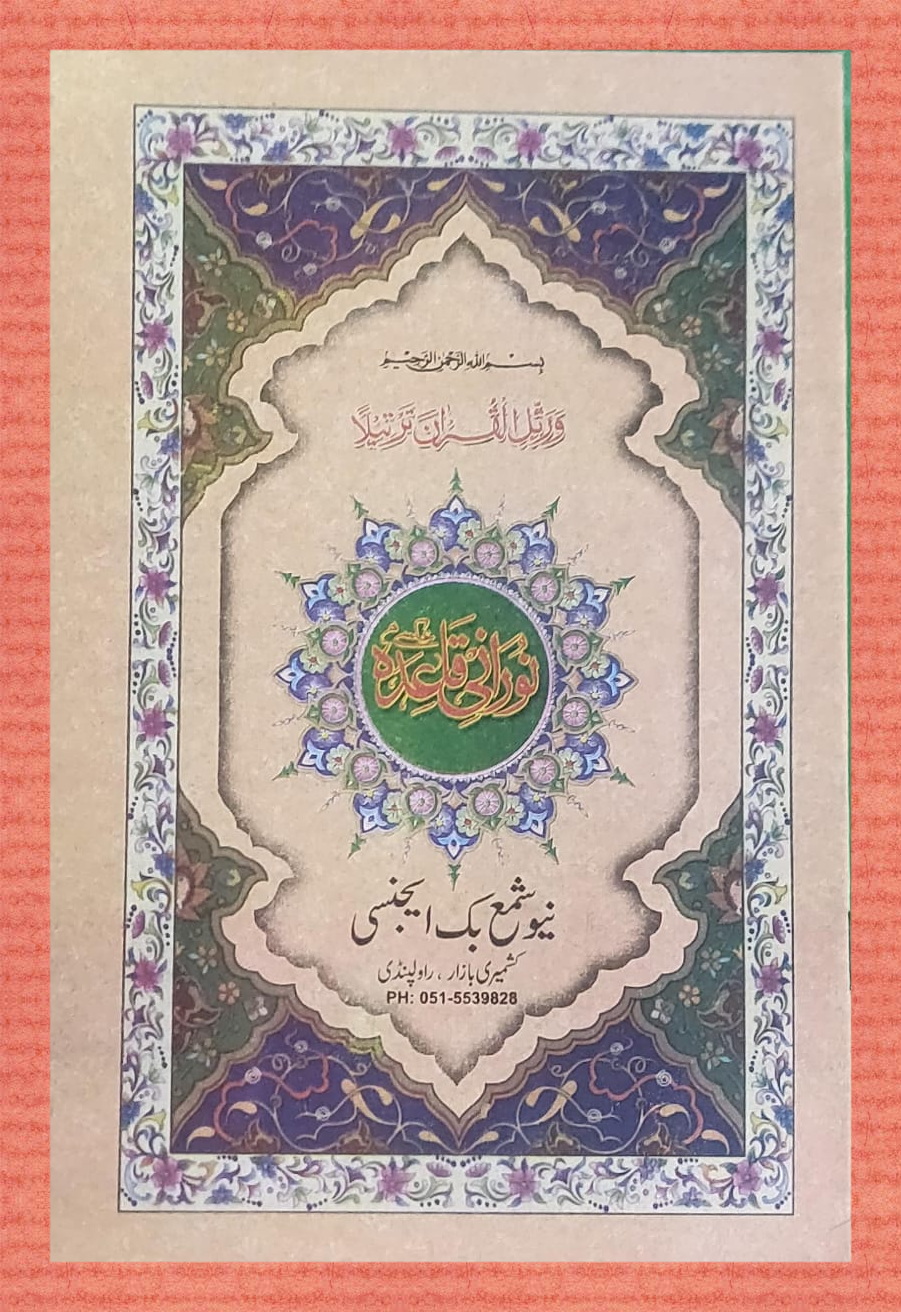 بسم الله الرحمن الرحيم
وَرَتِّلِ الْقُرْاٰنَ تَرْتِيْلًا
نُورَانِی قَاعِدَہ
نیو شمع بک ایجنسی
کشمیری بازار ، راولپنڈی
PH: 051-5539828